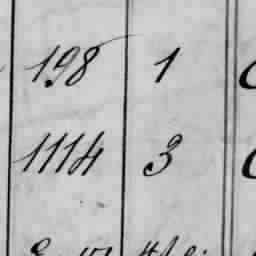 198 1
1114 3